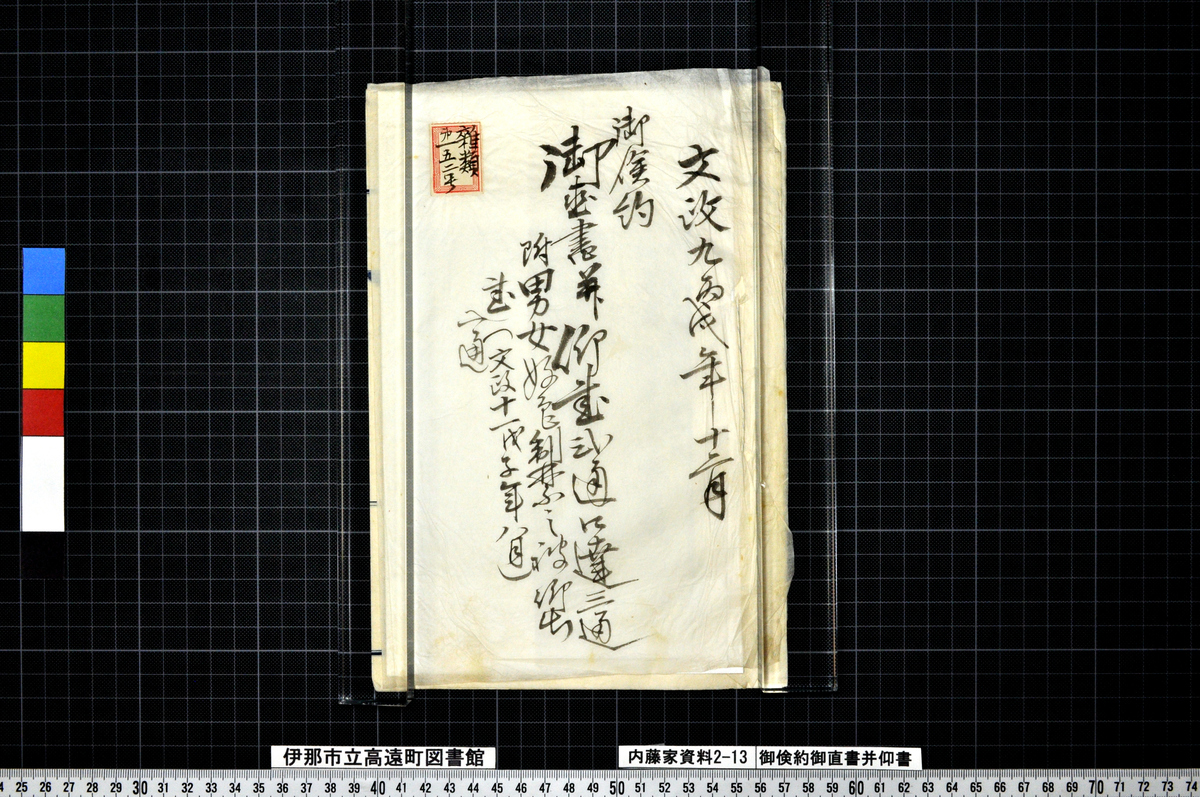 文政九丙戌年十二月
御倹約
御直書并仰書弐通口達三通
附男女好色制禁之被仰出
書一通 文政十一戊子年八月
雑類
第一五二号
伊那市立高遠町図書館
内藤家資料2-13
御倹約御直書并仰書
4 25 26 27 28 29 30 31 32 33 34 35 36 37 38 39 40 41 42 43 44 45 46 47 48 49 50 51 52 53 54 55 56 57 58 59 60 61 62 63 64 65 66 67 68 69 70 71 72 73 74